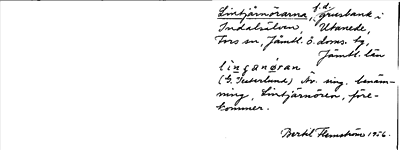 Lintjärnörarna, f.d. grusbank i
Indalsälven, Utanede,
Fors sn, Jämtl. ö. doms. tg,
Jämtl. län
linganøran
(G. Westerlund) Äv. sing. benäm-
ning, Lintjärnören, före-
kommer.
Bertil Flemström 1956.